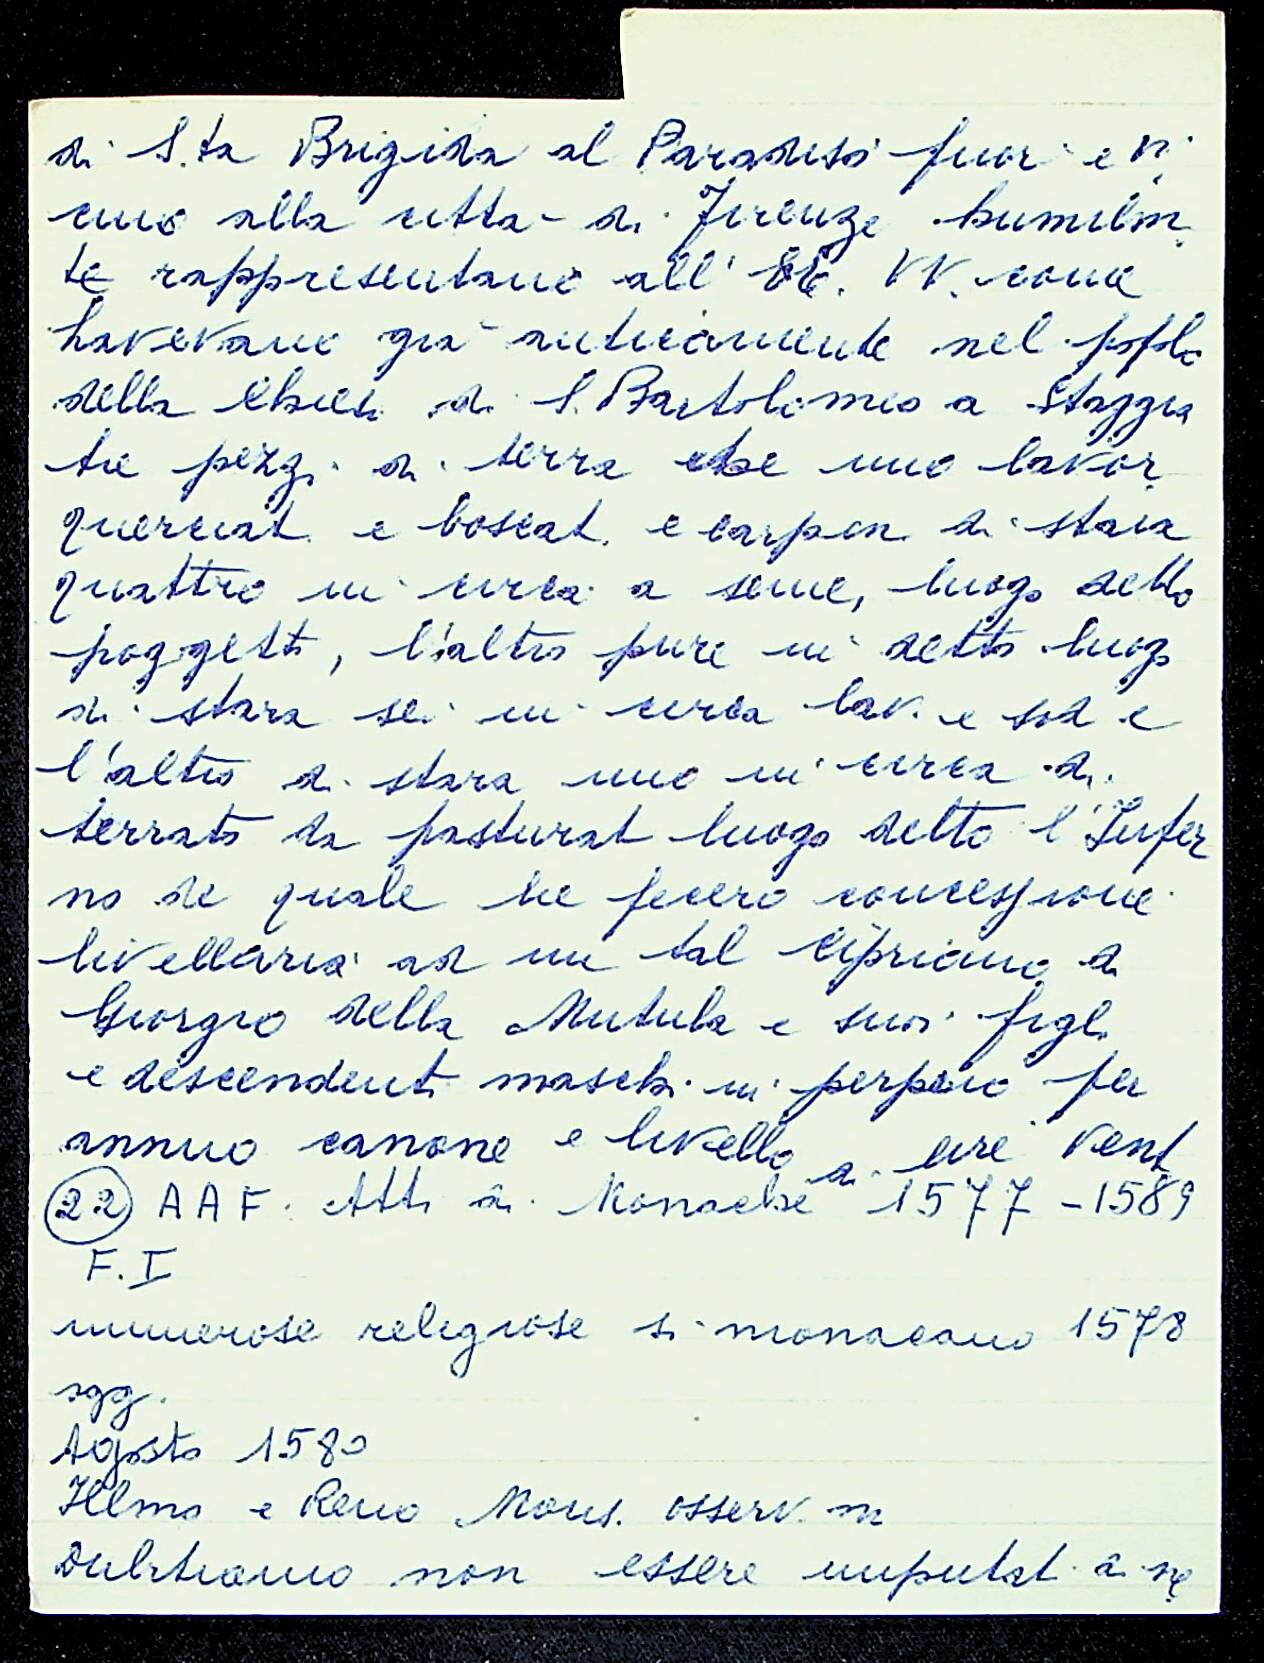 di S.ta Brigida al Paradiso fuori e vi
cino alla citta di Firenze humilm.
te rappresentano all' EE. VV. come
havevano già anticamente nel popolo
della Chiesa di S. Bartolomeo a Staggia
tre pezzi di terra che uno lavor.
querciat. e boscat. e carpen. di staia
quattro in circa a seme, luogo detto
poggetti, l'altro pure in detto luogo
di staia sei in circa lav. e sod. e
l'altro di staia uno in circa di
terrato da pasturat luogo detto l'Infer
no de quale ne fecero concessione
livellaria ad un tal Cipriano di
Giorgio della Mutula e suoi figli
e descendenti maschi in perpetuo per
annuo canone e livello di lire venti
(22) AAF. Atti di Monache 1577-1589
F. I
numerose religiose si monacano 1578
sgg.
Agosto 1580
Illmo e Revo Mons. osserv. m
Dubitiamo non essere imputati di ne